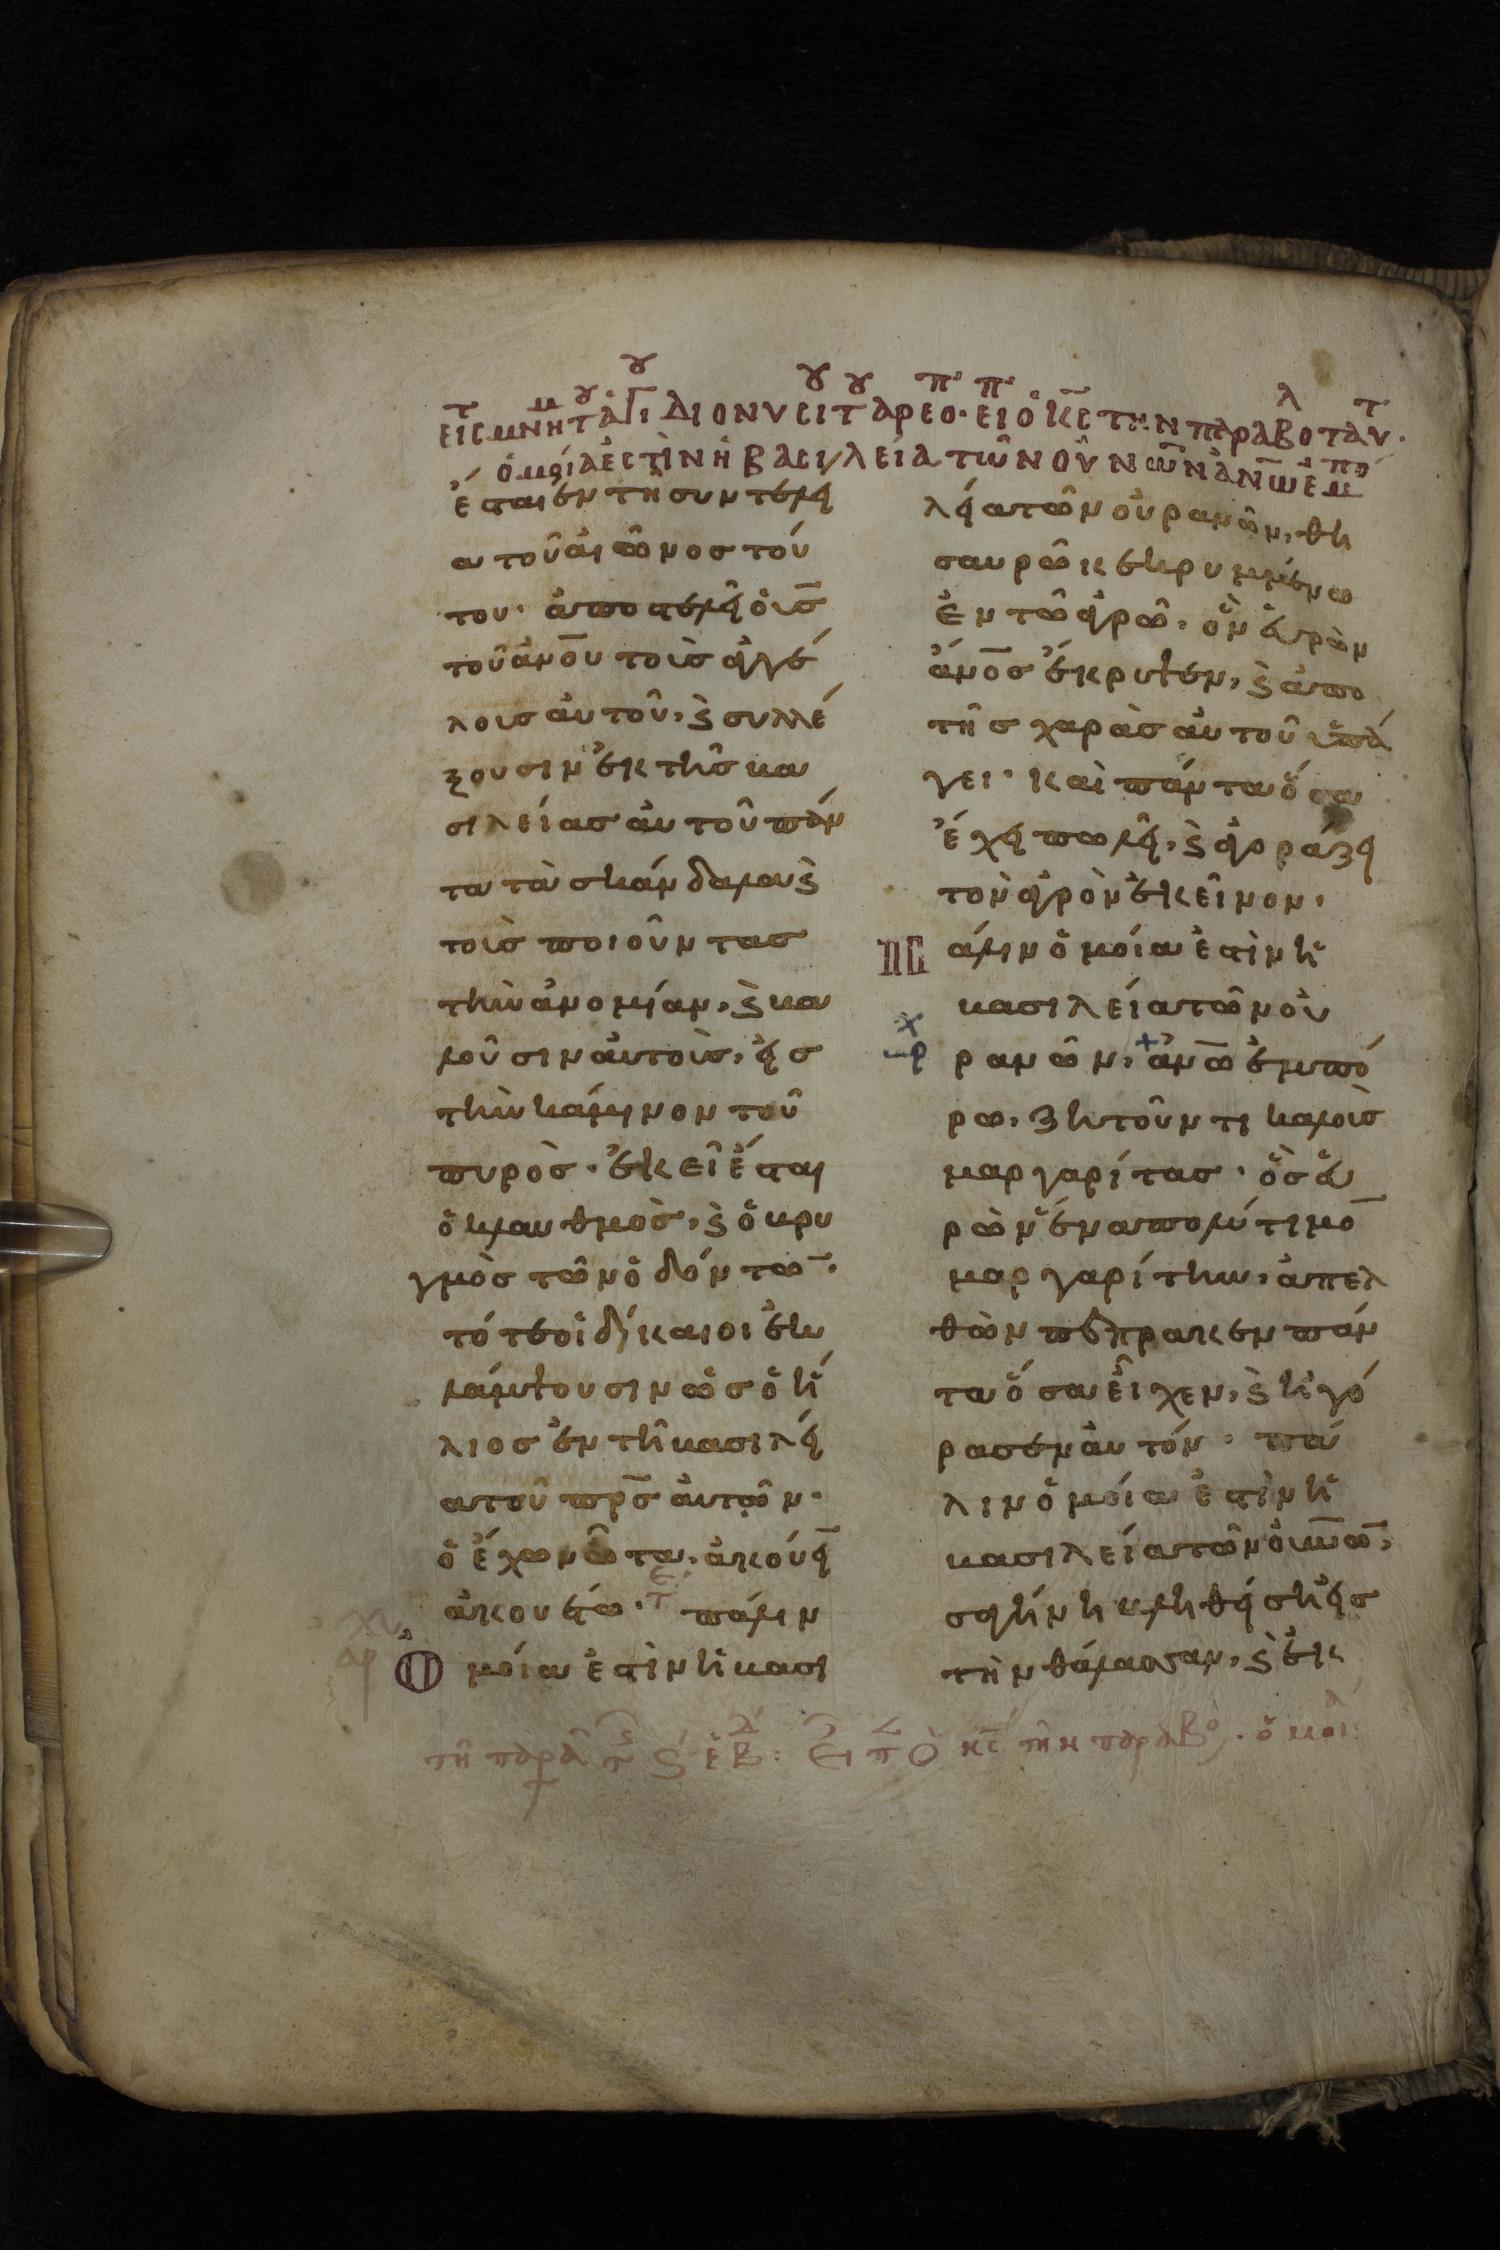 εἰς μνήμ τοῦ ἁγίου Διονυσίου τοῦ ἀρεοπ. εἶπ ὁ κς τὴν παραβολ ταύτ.
ὁμοία ἐστὶν ἡ βασιλεία τῶν οὐνῶν ἀνω ἐμπό
ἔσται ἐν τῆ συντελεί
α τοῦ αἰῶνος τού
του· ἀποστελεῖ ὁ υς
τοῦ ανου τοὺς ἀγγέ
λους αὐτοῦ, ϗ συλλέ
ξουσιν ἐκ τῆς βα
σιλείας αὐτοῦ πάν
τα τὰ σκάνδαλα ϗ
τοὺς ποιοῦντας
τὴν ἀνομίαν, ϗ βα
λοῦσιν αὐτοὺς, εἰς
τὴν κάμινον τοῦ
πυρὸς· ἐκεῖ ἔσται
ὁ κλαυθμὸς, ϗ ὁ βρυ
γμὸς τῶν ὀδόντω·
τότε οἱ δίκαιοι ἐκ
λάμψουσιν ὡς ὁ ἥ
λιος ἐν τῆ βασιλεί
α τοῦ πρς αὐτῶν·
ὁ ἔχων ὦτα, ἀκούειν
ἀκουέτω· πάλιν
Ὁμοία ἐστὶν ἡ βασι
λεία τῶν οὐρανῶν, θη
σαυρῶ κεκρυμμένω
ἐν τῶ ἀγρῶ, ὃν εὑρὼν
ανος ἔκρυψεν, ϗ ἀπο
τῆς χαρὰς αὐτοῦ ὑπά
γει· καὶ πάντα ὅσα
ἔχει πωλεῖ, ϗ ἀγοράζει
τὸν ἀγρὸν ἐκεῖνον·
Πάλιν ὁμοία ἐστὶν ἡ
βασιλεία τῶν οὐ
ρανῶν, ανω ἐμπό
ρω, ζητοῦντι καλοὺς
μαργαρίτας· ὃς εὑ
ρὼν ἕνα πολύτιμο
μαργαρίτην, ἀπελ
θὼν πέπρακεν πάν
τα ὅσα εἶχεν, ϗ ἠγό
ρασεν αὐτόν· πά
λιν ὁμοία ἐστὶν ἡ
βασιλεία τῶν οὐνων,
σαγήνη βληθείση εἰς
τὴν θάλασσαν, ϗ ἐκ
ὁ κς τὴν παραβο· ὁμοι